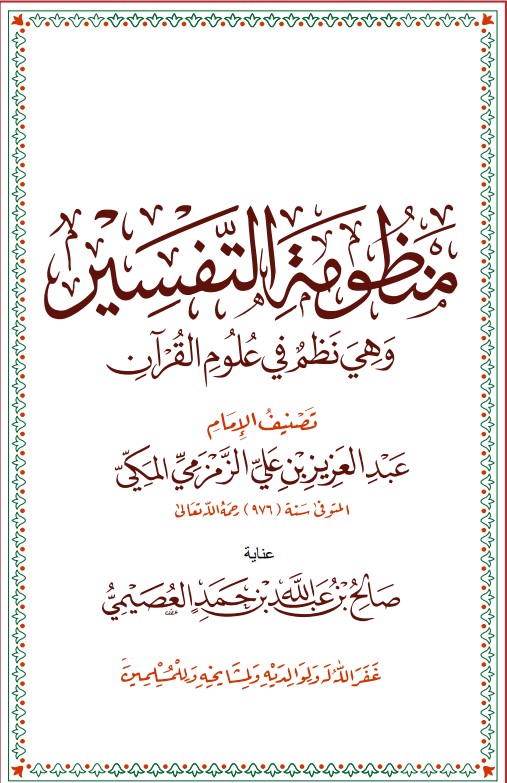 مَنْظُومَةُ التَّفْسِيْرِ
وَهِيَ نَظْمٌ فِي عُلُومِ القُرْآنِ
تَصْنِيفُ الإِمَامِ
عَبْدِ العَزِيزِ بْنِ عَلِيٍّ الزَّمْزَمِيِّ المَكِّيِّ
المتوفى سنة (٩٧٦) رحمه الله تعالى
عناية
صَالِحُ بْنُ عَبْدِ اللَّهِ بْنِ حَمَدٍ العُصَيْمِيُّ
غَفَرَ اللَّهُ لَهُ وَلِوَالِدَيْهِ وَلِمَشَايِخِهِ وَلِلْمُسْلِمِينَ